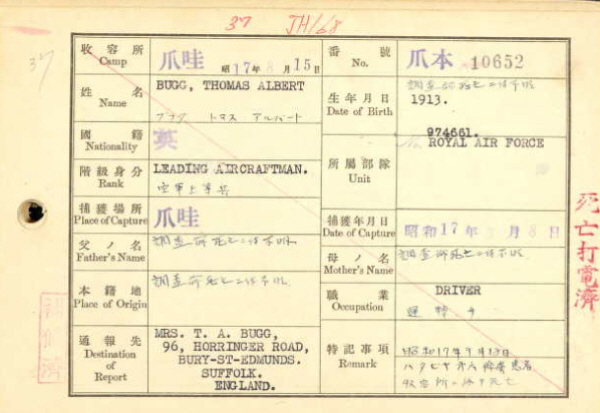 37 JH/68
37
收容所
Camp
爪哇
昭17年8月15日
番號
No.
爪本 10652
姓名
Name
BUGG, THOMAS ALBERT
ブッグ トマス アルバート
生年月日
Date of Birth
1913.
國籍
Nationality
英
974661.
ROYAL AIR FORCE
所屬部隊
Unit
階級身分
Rank
LEADING AIRCRAFTMAN.
空軍上等兵
捕獲場所
Place of Capture
爪哇
捕獲年月日
Date of Capture
昭和17年3月8日
父ノ名
Father's Name
母ノ名
Mother's Name
本籍地
Place of Origin
職業
Occupation
DRIVER
通報先
Destination of Report
MRS. T. A. BUGG,
96, HORRINGER ROAD,
BURY-ST-EDMUNDS.
SUFFOLK.
ENGLAND.
特記事項
Remark
死亡打電濟